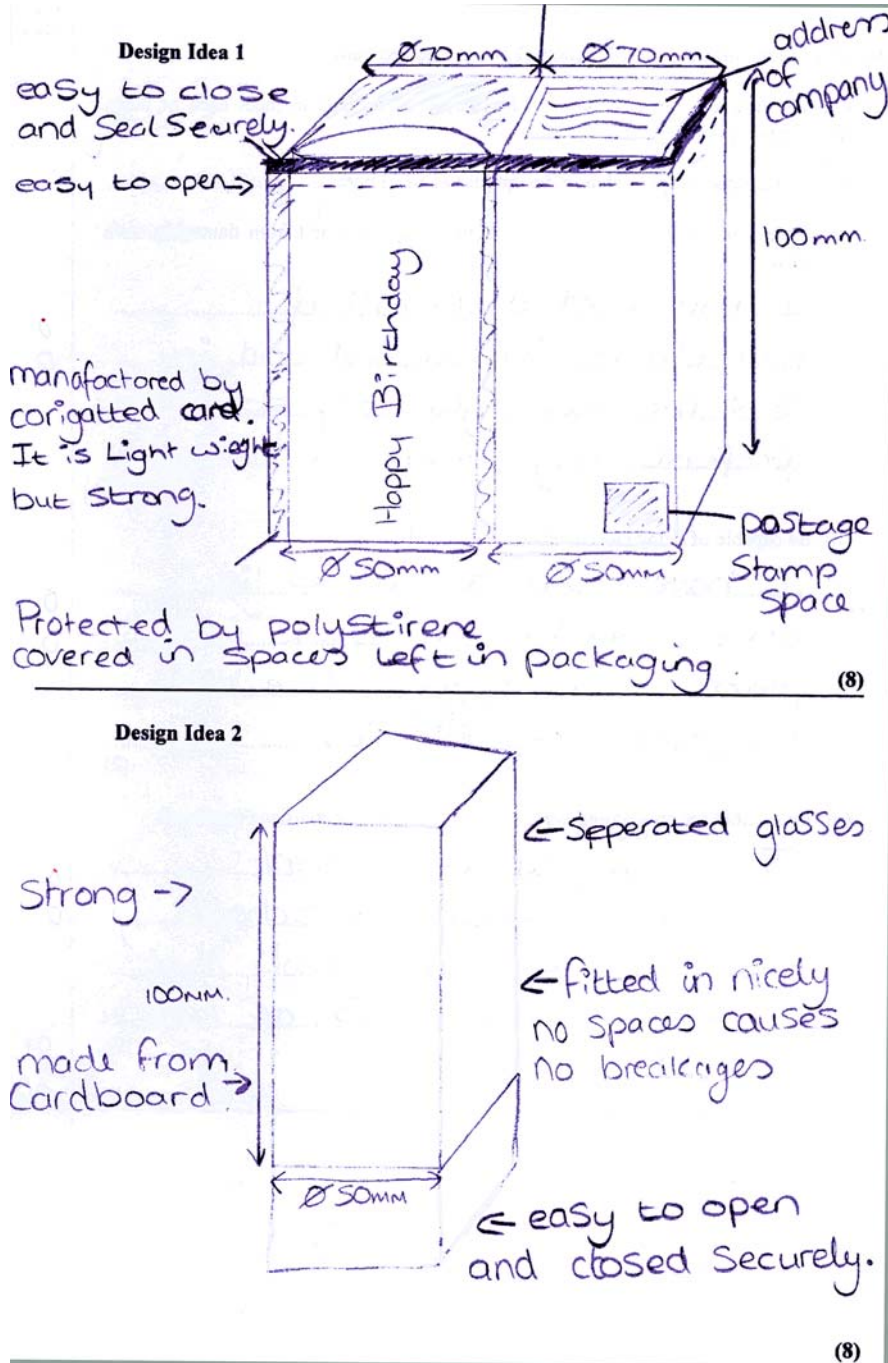 Design Idea 1
Ø70mm
Ø70mm
address
of
company
easy to close
and Seal Securely.
easy to open
100mm.
Happy Birthday
manafactored by
corigatted card.
It is Light wieght
but Strong.
Ø50mm
Ø50mm
postage
Stamp
Space
Protected by polyStirene
covered in spaces left in packaging
(8)
Design Idea 2
Seperated glasses
Strong
100mm.
fitted in nicely
no spaces causes
no breakages
made from
Cardboard
Ø50mm
easy to open
and closed Securely.
(8)